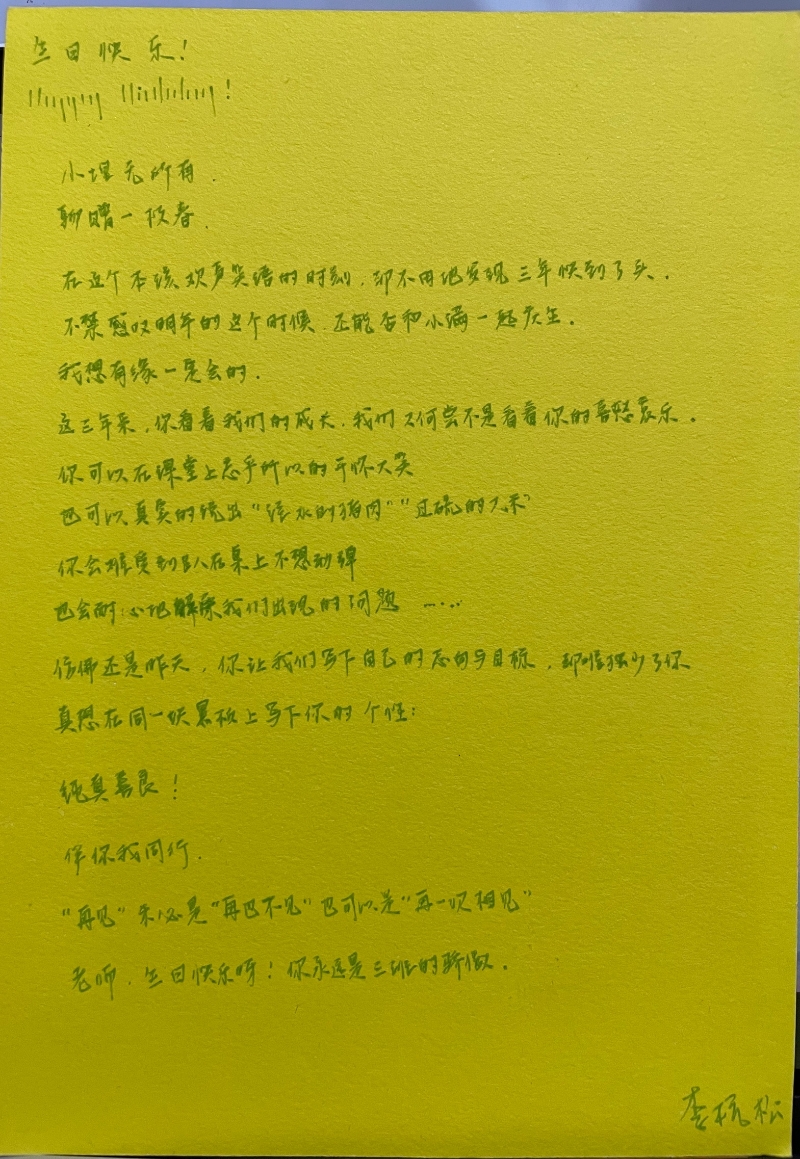 生日快乐!
Happy Birthday!
小埋无所有.
聊赠一枝春.
在这个本该欢声笑语的时刻,却不由地发现三年快到了头.
不禁感叹明年的这个时候,还能否和小满一起庆生.
我想有缘一定会的.
这三年来,你看着我们的成长,我们又何尝不是看着你的喜怒哀乐.
你可以在课堂上忘乎所以的开怀大笑
也可以真实的说出“注水的猪肉”“过硫的大米”
你会难受到趴在桌上不想动弹
也会耐心地解決我们出现的问题 ……
仿佛还是昨天,你让我们写下自己的志向与目标,却唯独少了你
真想在同一块黑板上写下你的个性:
纯真善良!
伴你我同行.
“再见”未必是“再也不见”也可以是“再一次相见”
老师,生日快乐呀!你永远是三班的骄傲.